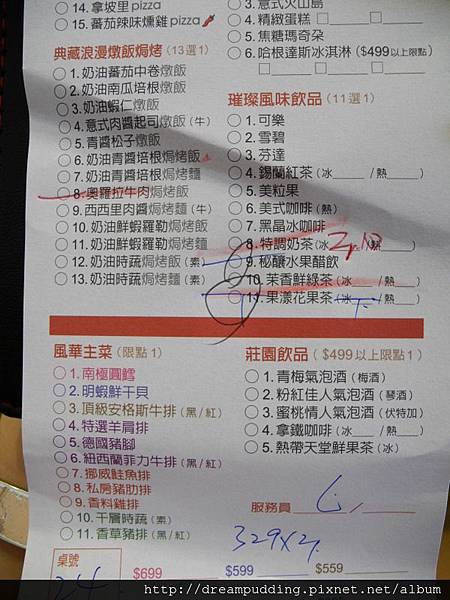 14. 拿坡里pizza
15. 蕃茄辣味燻雞pizza
典藏浪漫燉飯焗烤 (13選1)
1. 奶油蕃茄中卷燉飯
2. 奶油南瓜培根燉飯
3. 奶油蝦仁燉飯
4. 意式肉醬起司燉飯 (牛)
5. 青醬松子燉飯
6. 奶油青醬培根焗烤飯
7. 奶油青醬培根焗烤麵
8. 奧羅拉牛肉焗烤飯
9. 西西里肉醬焗烤麵 (牛)
10. 奶油鮮蝦羅勒焗烤飯
11. 奶油鮮蝦羅勒焗烤麵
12. 奶油時蔬焗烤飯 (素)
13. 奶油時蔬焗烤麵 (素)
3. 意式火山島
4. 精緻蛋糕
5. 焦糖瑪奇朵
6. 哈根達斯冰淇淋 ($499以上限點)
璀璨風味飲品 (11選1)
1. 可樂
2. 雪碧
3. 芬達
4. 錫蘭紅茶 (冰 /熱 )
5. 美粒果
6. 美式咖啡 (熱)
7. 黑晶冰咖啡
8. 特調奶茶 (冰 /熱 )
9. 秘釀水果醋飲
10. 茉香鮮綠茶 (冰 /熱 )
11. 果漾花果茶 (冰 /熱 )
風華主菜 (限點1)
1. 南極圓鱈
2. 明蝦鮮干貝
3. 頂級安格斯牛排 (黑/紅)
4. 特選羊肩排
5. 德國豬腳
6. 紐西蘭菲力牛排 (黑/紅)
7. 挪威鮭魚排
8. 私房豬肋排
9. 香料雞排
10. 千層時蔬 (素)
11. 香草豬排 (黑/紅)
莊園飲品 ($499以上限點1)
1. 青梅氣泡酒 (梅酒)
2. 粉紅佳人氣泡酒 (琴酒)
3. 蜜桃情人氣泡酒 (伏特加)
4. 拿鐵咖啡 (冰 /熱 )
5. 熱帶天堂鮮果茶 (冰)
服務員 /
329x2
桌號
24
$699 $599 $559
http://dreampudding.pixnet.net/album